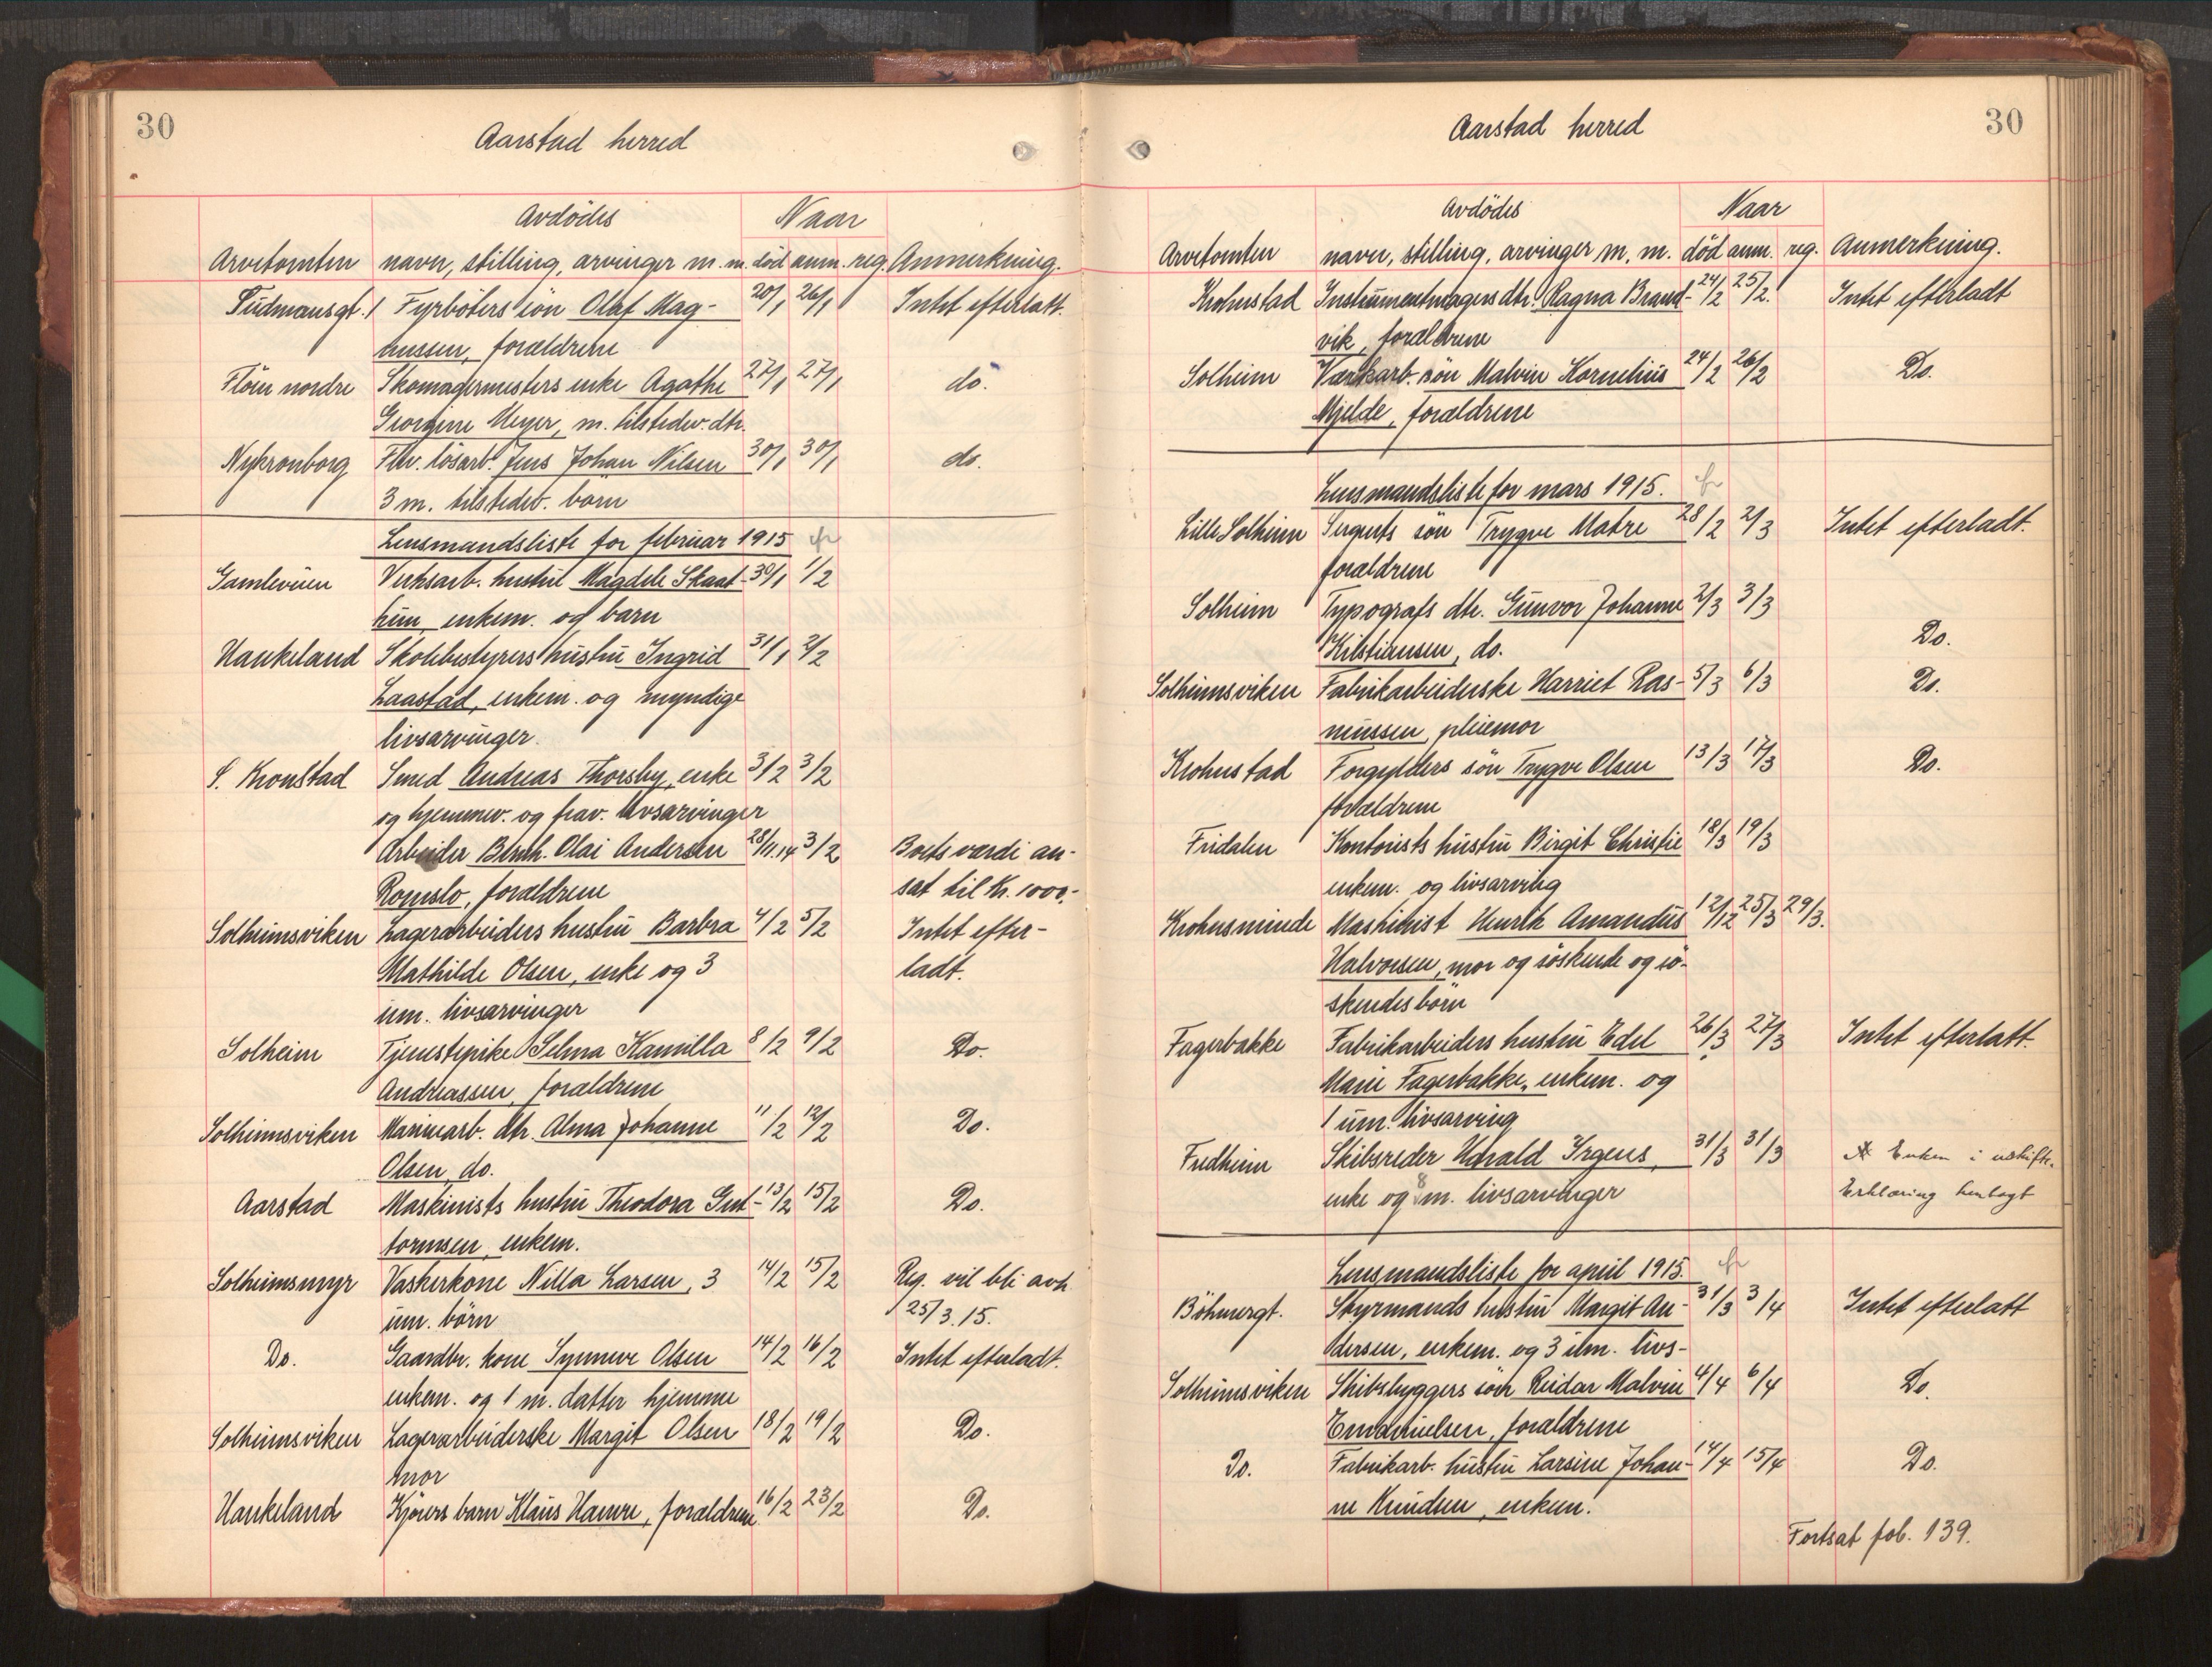 30
Aarstad herred
Avdödes Naar
Arvetomten navn, stilling, arvinger m. m. död anm. reg. Anmerkning.
Tidmansgt. 1 Fyrböters sön Olaf Mag- 20/1 26/1 Intet efterlatt.
nussen, forældrene
Flöen nordre Skomagermesters enke Agathe 27/1 27/1 do.
Georgine Meyer, m. tilstedev. dtr.
Nykronborg Frav. lösarb. Jens Johan Nilsen 30/1 30/1 do.
3 m. tilstedev. börn
Lensmandsliste for februar 1915
Gamleveien Verksarb. hustru Magdele Skaat- 30/1 1/2
hun enkem. og barn
Haukeland Skolebestyrers hustru Ingrid 31/1 2/2
Laastad, enkem. og myndige
livsarvinger.
S. Kronstad Smed Andreas Thorsby, enke 3/2 3/2
og hjemmev. og frav. livsarvinger
Arbeider Bernh. Olai Andersen 28/11.14 3/2 Boets værdi an-
Romslo, forældrene sat til Kr. 1000,-
Solheimsviken Lagerarbeiders hustru Barbra 4/2 5/2 Intet efter-
Mathilde Olsen, enke og 3 ladt.
um. livsarvinger
Solheim Tjenestepike Selma Kamilla 8/2 9/2 Do.
Andreassen, forældrene
Solheimsviken Marinearb. dtr. Alma Johanne 11/2 12/2 Do.
Olsen, do.
Aarstad Maskinists hustru Theodora Gut- 13/2 15/2 Do.
tormsen, enkem.
Solheimsmyr Vaskerkone Nilla Larsen, 3 14/2 15/2 Reg. vil bli avh.
um. börn 25/3.15.
Do. Gaardbr. kone Synneve Olsen 14/2 16/2 Intet efterladt.
enkem. og 1 m. datter hjemme
Solheimsviken Lagerarbeiderske Margit Olsen 18/2 19/2 Do.
mor
Haukeland Kjörers barn Klaus Hamre, forældrene 16/2 23/2 Do.
30
Aarstad herred
Avdödes Naar
Arvetomten navn, stilling, arvinger m. m. död anm. reg. Anmerkning.
Krohnstad Instrumentmagers dtr. Ragna Brand- 24/2 25/2. Intet efterladt
vik, forældrene
Solheim Værkarb. sön Malvin Kornelius 24/2 26/2 Do.
Mjelde, forældrene
Lensmandsliste for mars 1915.
Lille Solheim Sergents sön Trygve Matre 28/2 2/3 Intet efterladt.
forældrene
Solheim Typografs dtr. Gunvor Johanne 2/3 3/3
Kilstiansen, do. Do.
Solheimsviken Fabrikarbeiderske Harriet Ras- 5/3 6/3 Do.
mussen, pleiemor
Krohnstad Forgylders sön Trygve Olsen 13/3 17/3 Do.
forældrene
Fridalen Kontorists hustru Birgit Christie 18/3 19/3
enkem. og livsarving
Krohnsminde Maskinist Henrik Amandus 12/12 25/3 29/3.
Halvorsen, mor og söskende og sö-
skendes börn
Fagerbakke Fabrikarbeiders hustru Edel 26/3 27/3 Intet efterlatt.
Marie Fagerbakke, enkem. og
1 um. livsarving
Fredheim Skibsreder Harald Irgens, 31/3 31/3 Enken i uskifte.
enke og 8 m. livsarvinger Erklæring henlagt
Lensmandsliste for april 1915.
Böhmergt. Styrmands hustru Margit An- 31/3 3/4 Intet efterlatt
dersen, enkem. og 3 um. livs-
Solheimsviken Skibsbyggers sön Reidar Malvin 4/4 6/4 Do.
Emanuelsen, forældrene
Do. Fabrikarb. hustru Larsine Johan- 14/4 15/4 Do.
ne Knudsen, enkem.
Fortsat fol. 139.